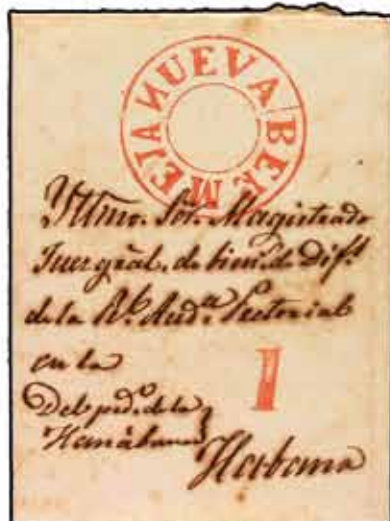 NUEVA BERMEJA
Yltmo. Sor. Magistrado
Juez gral. de bien.s de Dif.s
de la Rl. Aud.a Pretorial
en la
I
Del ped.o de la
Hanábana
Habana